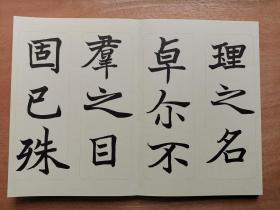 理之名
卓尒不
羣之目
固已殊